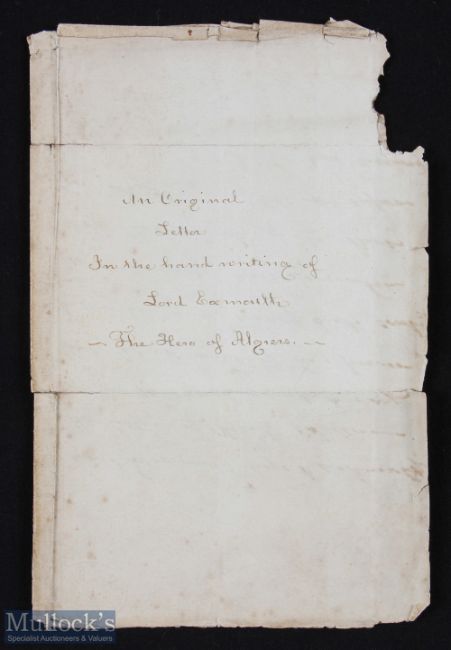 An Original
Letter
In the hand writing of
Lord Exmouth
~ The Hero of Algiers. ~
Mullock's
Specialist Auctioneers & Valuers